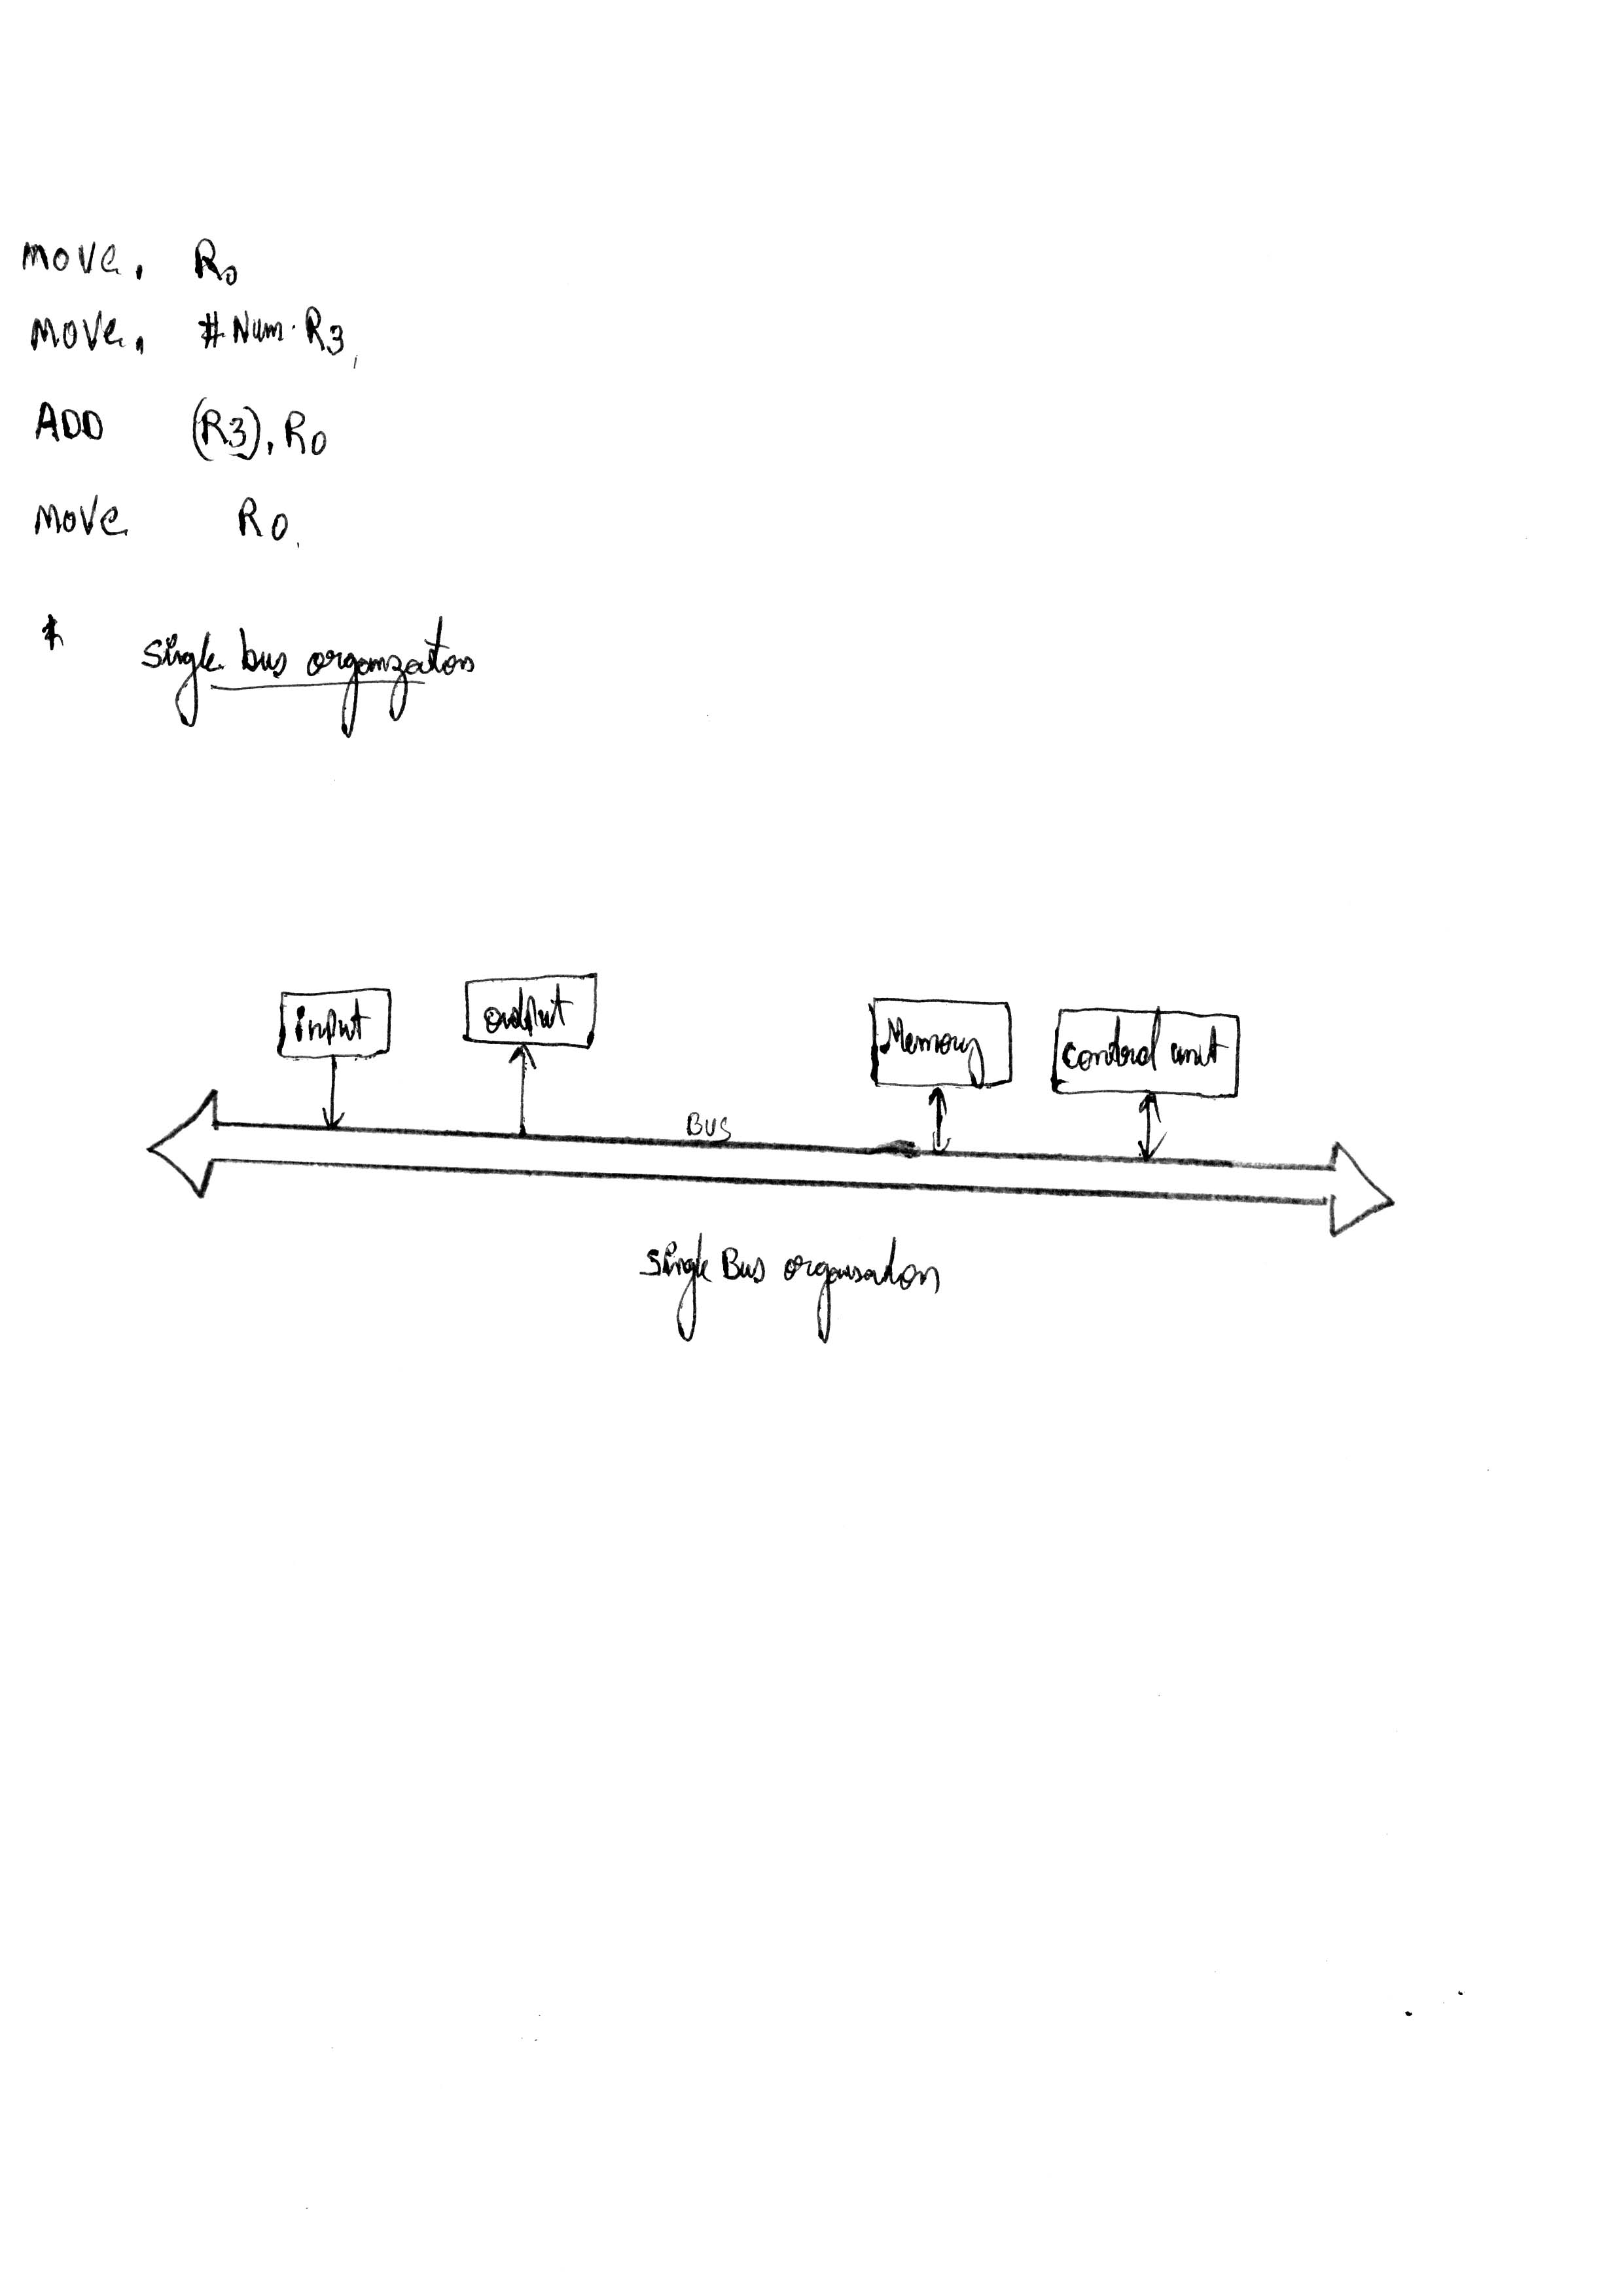 Move, R0
Move, #Num. R3,
ADD (R3), R0
Move R0,
* Single bus organization
input output
Memory control unit
BUS
Single Bus organisation